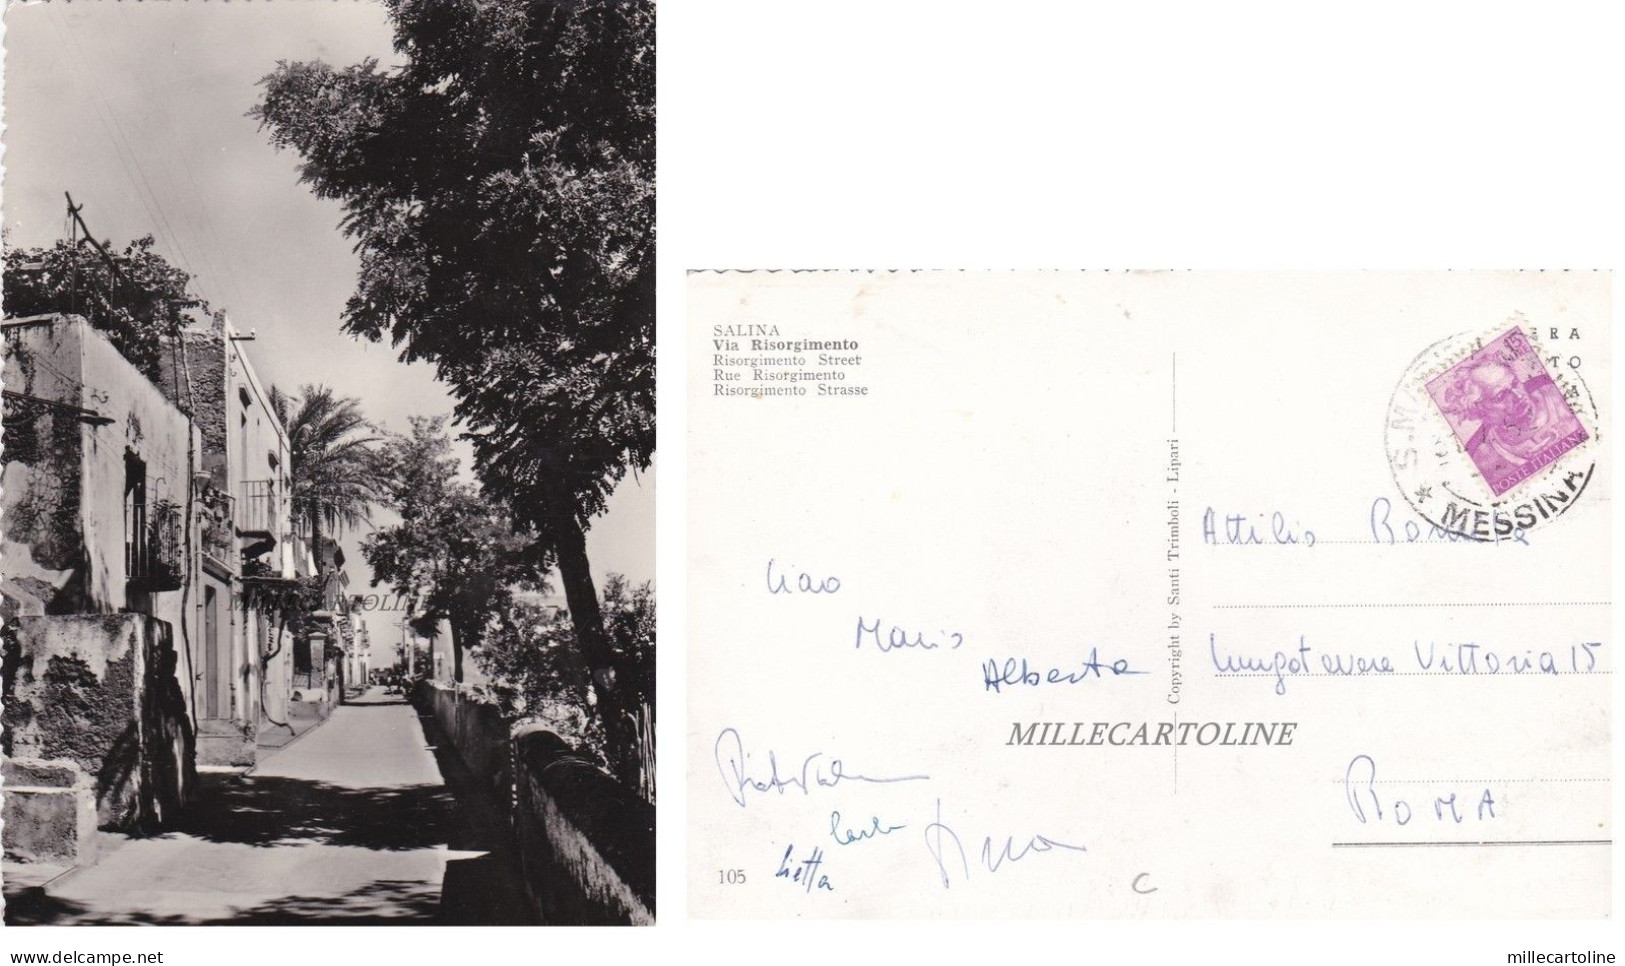 MILLECARTOLINE
SALINA
Via Risorgimento
Risorgimento Street
Rue Risorgimento
Risorgimento Strasse
ERA
TO
S.MA
MESSINA
15
POSTE ITALIANE
Copyright by Santi Trimboli - Lipari
Attilio
Lungotevere Vittoria 15
ROMA
Ciao
Mario
Alberta
MILLECARTOLINE
Carlo
Lietta
105
C
www.delcampe.net
millecartoline